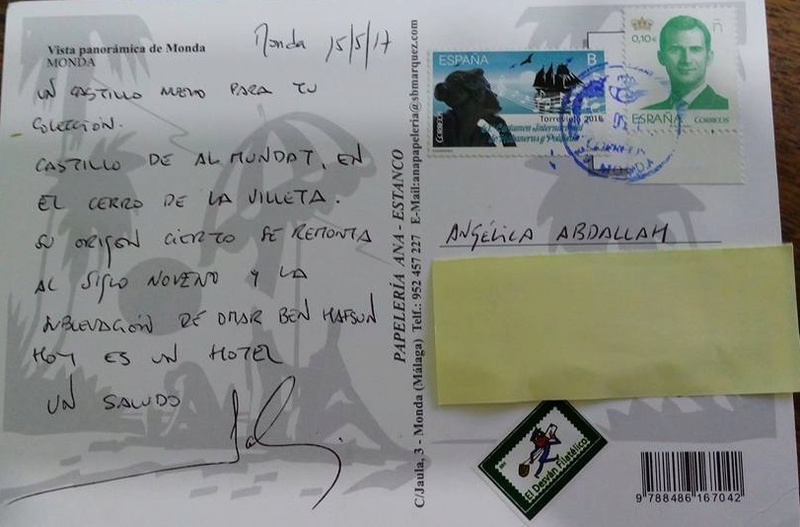 Vista panorámica de Monda
MONDA
Monda 15/5/17
UN CASTILLO NUEVO PARA TU
COLECCIÓN.
CASTILLO DE AL MUNDAT, EN
EL CERRO DE LA VILLETA.
SU ORIGEN CIERTO SE REMONTA
AL SIGLO NOVENO Y LA
SUBLEVACIÓN DE OMAR BEN HAFSUN
HOY ES UN HOTEL
UN SALUDO
C/Jaula, 3 - Monda (Málaga) Telf.: 952 457 227 E-Mail:anapapeleria@sbmarquez.com
PAPELERÍA ANA - ESTANCO
ESPAÑA B
CORREOS
Torrevieja 2016
Certamen Internacional
de Habaneras y Polifonía
0,10€
ESPAÑA CORREOS
MONDA
ANGÉLICA ABDALLAH
El Desván Filatélico
9 788486 167042